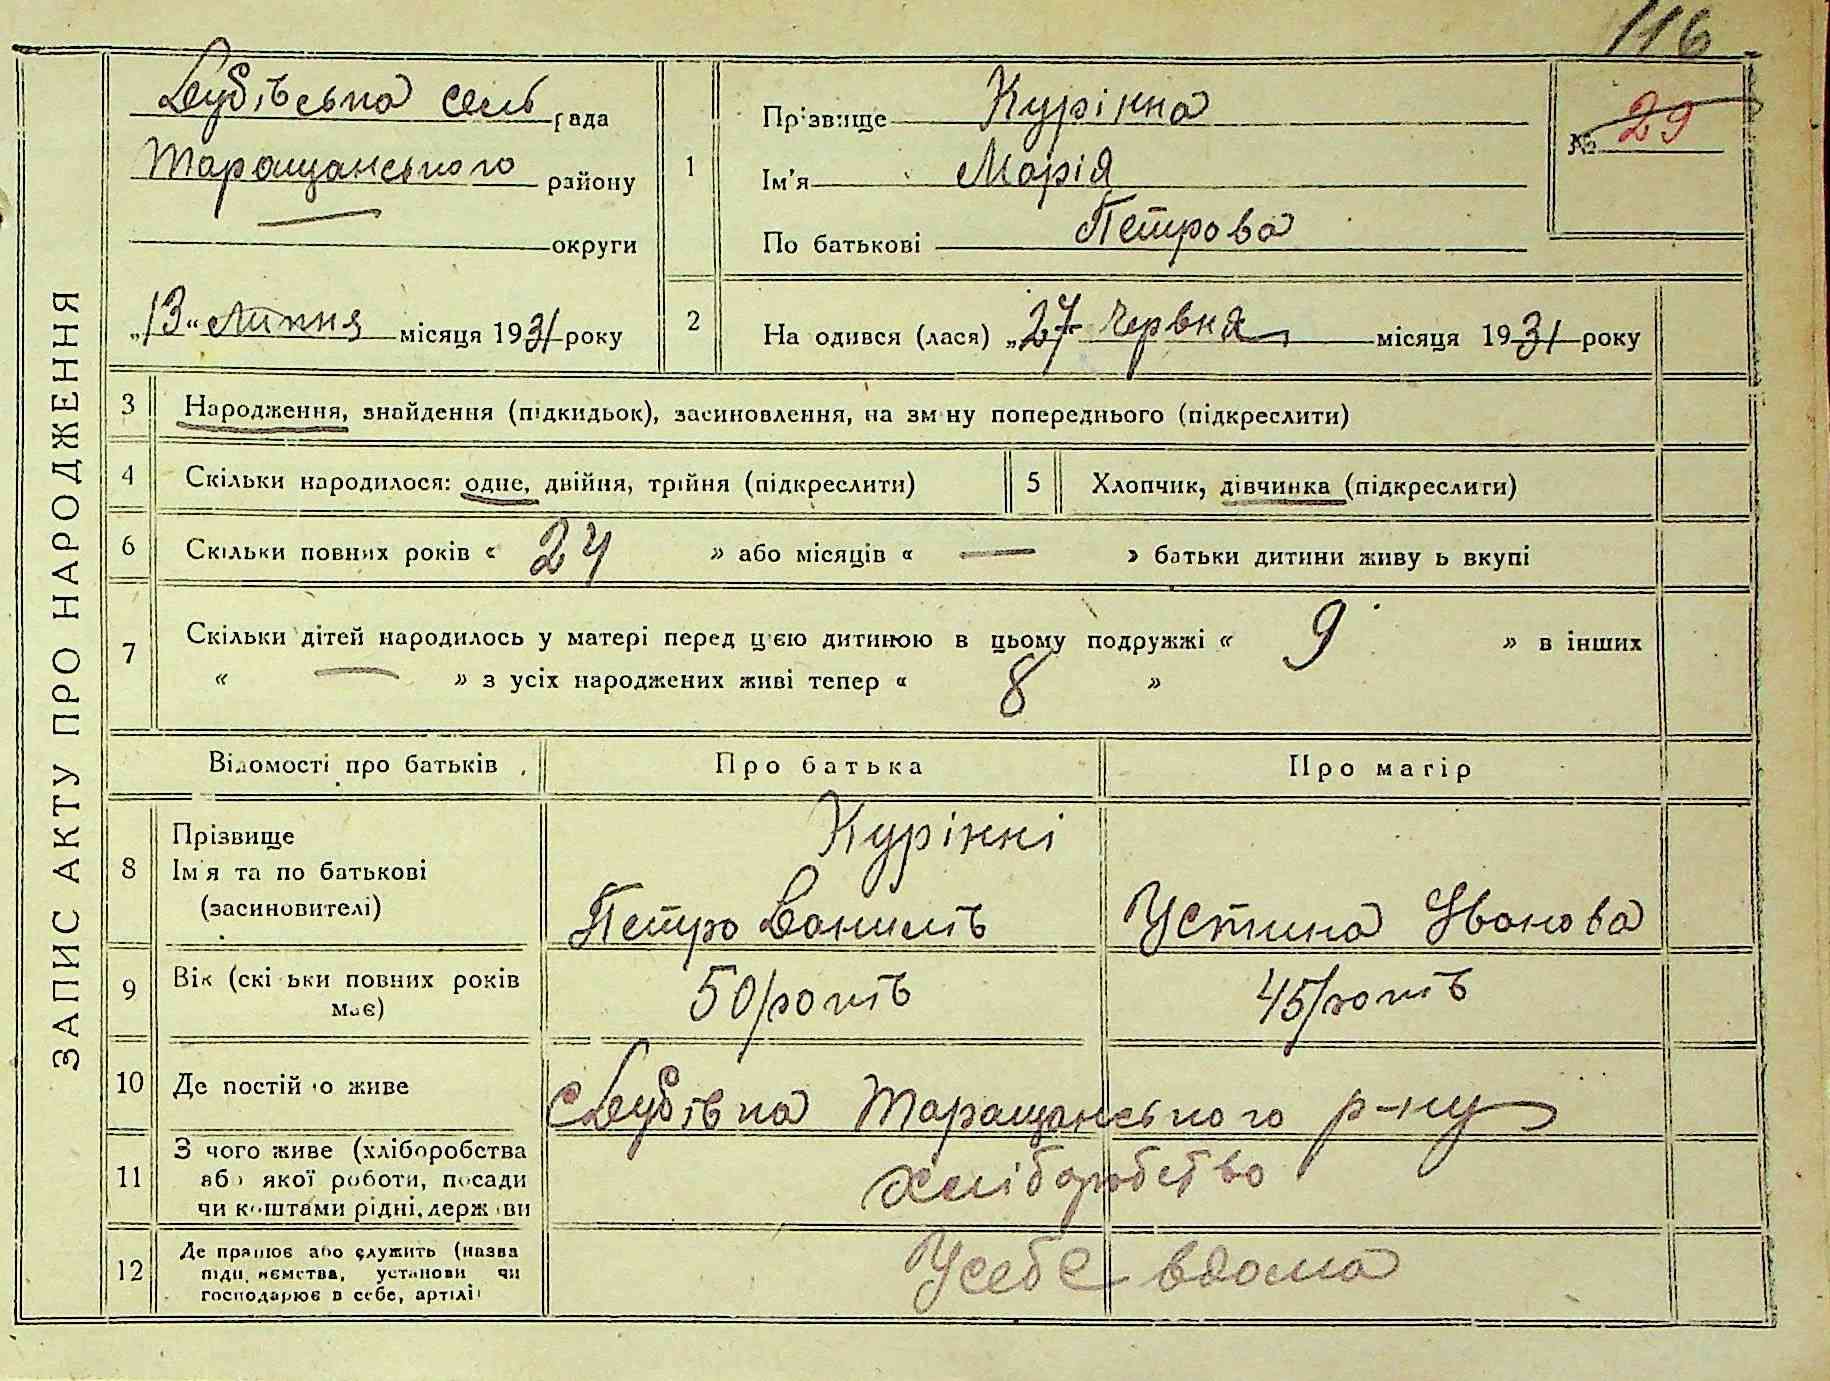 116
ЗАПИС АКТУ ПРО НАРОДЖЕННЯ
Дубівська сель рада
Таращанського району
— округи
„13“ липня місяця 1931 року
1
Прізвище Курінна
Ім'я Марія
По батькові Петрова
№ 29
2
На одився (лася) „27 червня місяця 1931 року
3 Народження, знайдення (підкидьок), засиновлення, на зміну попереднього (підкреслити)
4 Скільки народилося: одне, двійня, трійня (підкреслити)
5 Хлопчик, дівчинка (підкреслити)
6 Скільки повних років « 24 » або місяців « — » батьки дитини живу ь вкупі
7 Скільки дітей народилось у матері перед цією дитиною в цьому подружжі « 9 » в інших
« — » з усіх народжених живі тепер « 8 »
Відомості про батьків
Про батька
Про матір
8 Прізвище
Ім'я та по батькові
(засиновителі)
Курінні
Петро Данилів
Устина Іванова
9 Вік (скі ьки повних років
має)
50/років
45/років
10 Де постій о живе
с Дубівка Таращанського р-ну
11 З чого живе (хліборобства
або якої роботи, посади
чи коштами рідні, держ ви
хліборобство
12 Де працює або служить (назва
підп, иємства, установи чи
господарює в себе, артілі
У себе вдома